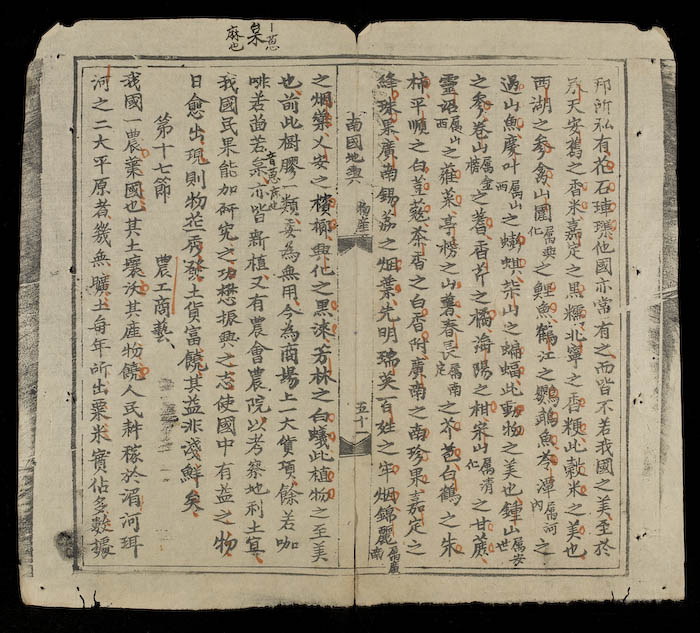 邦所私有花石璉他國亦常有之而皆不若我國之美至於
承天安舊之香米嘉定之黑糯北寧之香粳此穀米之美也
西湖之禽山圍屬興化之鯉魚鶴江之鸚鵡魚岑潭屬河內之
遇山魚慶叶屬山西之蜞柴山之蝙蝠此動物之美也鍾山屬安世
之卷山屬金榜之蓍香芹之橘陽之柑宋山屬清化之甘蔗
靈沼屬山西之蕹菜亭榜之山薯春長屬南定之芥芭白鶴之朱
柿平順之白荳蔻茶香之白香附廣南之南珍果嘉定之
絳珠果廣南錫荔之烟葉先明瑞英一百姓之牢烟錦麗屬廣南
南國地輿 物產 五十一
之烟藥乂安之檳榔興化之黑漆芳林之白蟻此植物之至美
也前此樹膠一類委為無用今為商場上一大貨項餘若咖
啡若茵若枲音葸麻也亦皆新植又有農會農院以考察地利土宜
我國民果能加研究之功懋振興之志使國中有益之物
日愈出現則物花秀發土貨富饒其益非淺鮮矣
第十七節 農工商藝
我國一農業國也其土壤沃其產物饒人民耕稼於湄河珥
河之二大平原者幾無曠土每年所出粟米實佔多數據
枲 葸麻也